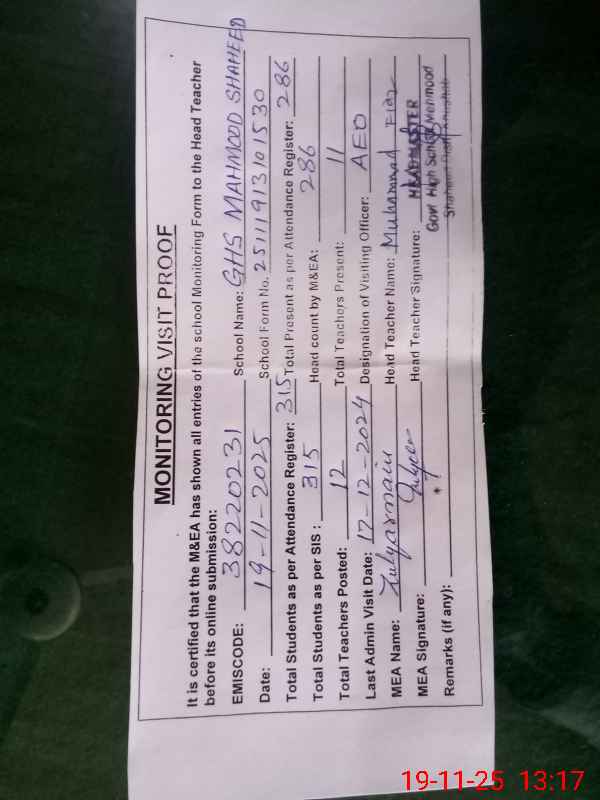 MONITORING VISIT PROOF
It is certified that the M&EA has shown all entries of the school Monitoring Form to the Head Teacher
before its online submission:
EMISCODE: 38220231 School Name: GHS MAHMOOD SHAHEED
Date: 19-11-2025 School Form No. 2511191310 1530
Total Students as per Attendance Register: 315 Total Present as per Attendance Register: 286
Total Students as per SIS : 315 Head count by M&EA: 286
Total Teachers Posted: 12 Total Teachers Present: 11
Last Admin Visit Date: 17-12-2024 Designation of Visiting Officer: AEO
MEA Name: Head Teacher Name: Muhammad
MEA Signature: Head Teacher Signature: HEADMASTER
Govt High School Mehmood
Shaheed
Remarks (if any):
19-11-25 13:17